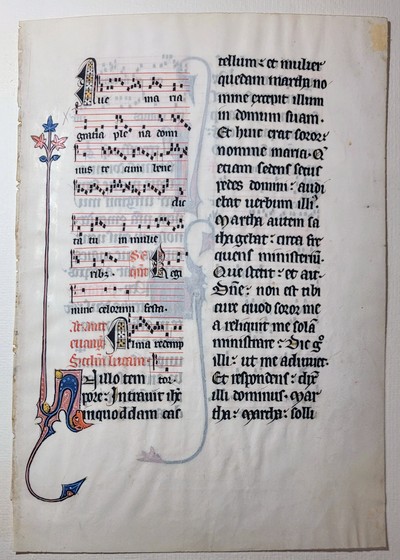 Aue ma ria
gratia ple na domi
nus te cum bene
dic
ta tu in mulie
ribꝫ. Regi
mine celorum festa.
Alma redemp
Secundum lucam. tor
In illo tem
pore: Intrauit ihc
in quoddam cas
tellum: et mulier
quedam martha no
mine excepit illum
in domum suam.
Et huic erat soror:
nomine maria. Q̄
eciam sedens secus
pedes domini: audi
ebat uerbum illiꝰ.
Martha autem sa
thagebat: circa fre
quens ministeriū.
Que stetit: et ait.
Dn̄e: non est tibi
cure quod soror me
a reliquit me solā
ministrare? Dic gͦ
illi: ut me adiuuet.
Et respondens: dix̄
illi dominus. Mar
tha: martha: solli